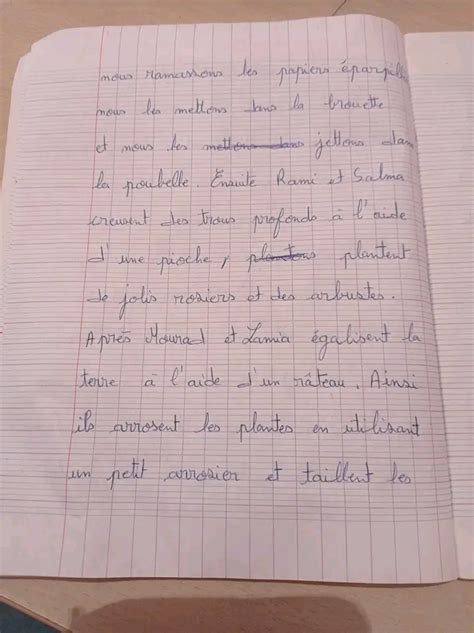 nous ramassons les papiers éparpill
nous les mettons dans la brouette
et nous les mettons dans jettons dan
la poubelle. Ensuite Rami et Salma
creusent des trous profonds à l'aide
d'une pioche, plantons plantent
de jolis rosiers et des arbustes.
Après Mourad et Lamia égalisent la
terre à l'aide d'un râteau. Ainsi
ils arrosent les plantes en utilisant
un petit arrosier et taillent les